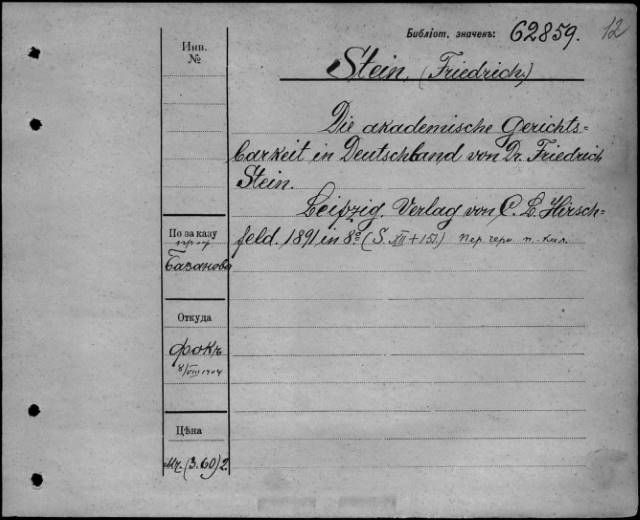 Библіот. значенъ: 62859. 12
Инв.
№
Stein, (Friedrich)
Die akademische Gerichts=
barkeit in Deutschland, von Dr. Friedrich
Stein.
Leipzig. Verlag von C. L. Hirsch=
feld. 1891 in 8º (S. XII + 151.) пер черн п. кал.
По заказу
проф
Базанова
Откуда
Фокъ
8/VIII 1904
Цѣна
Mr. (3.60) 2